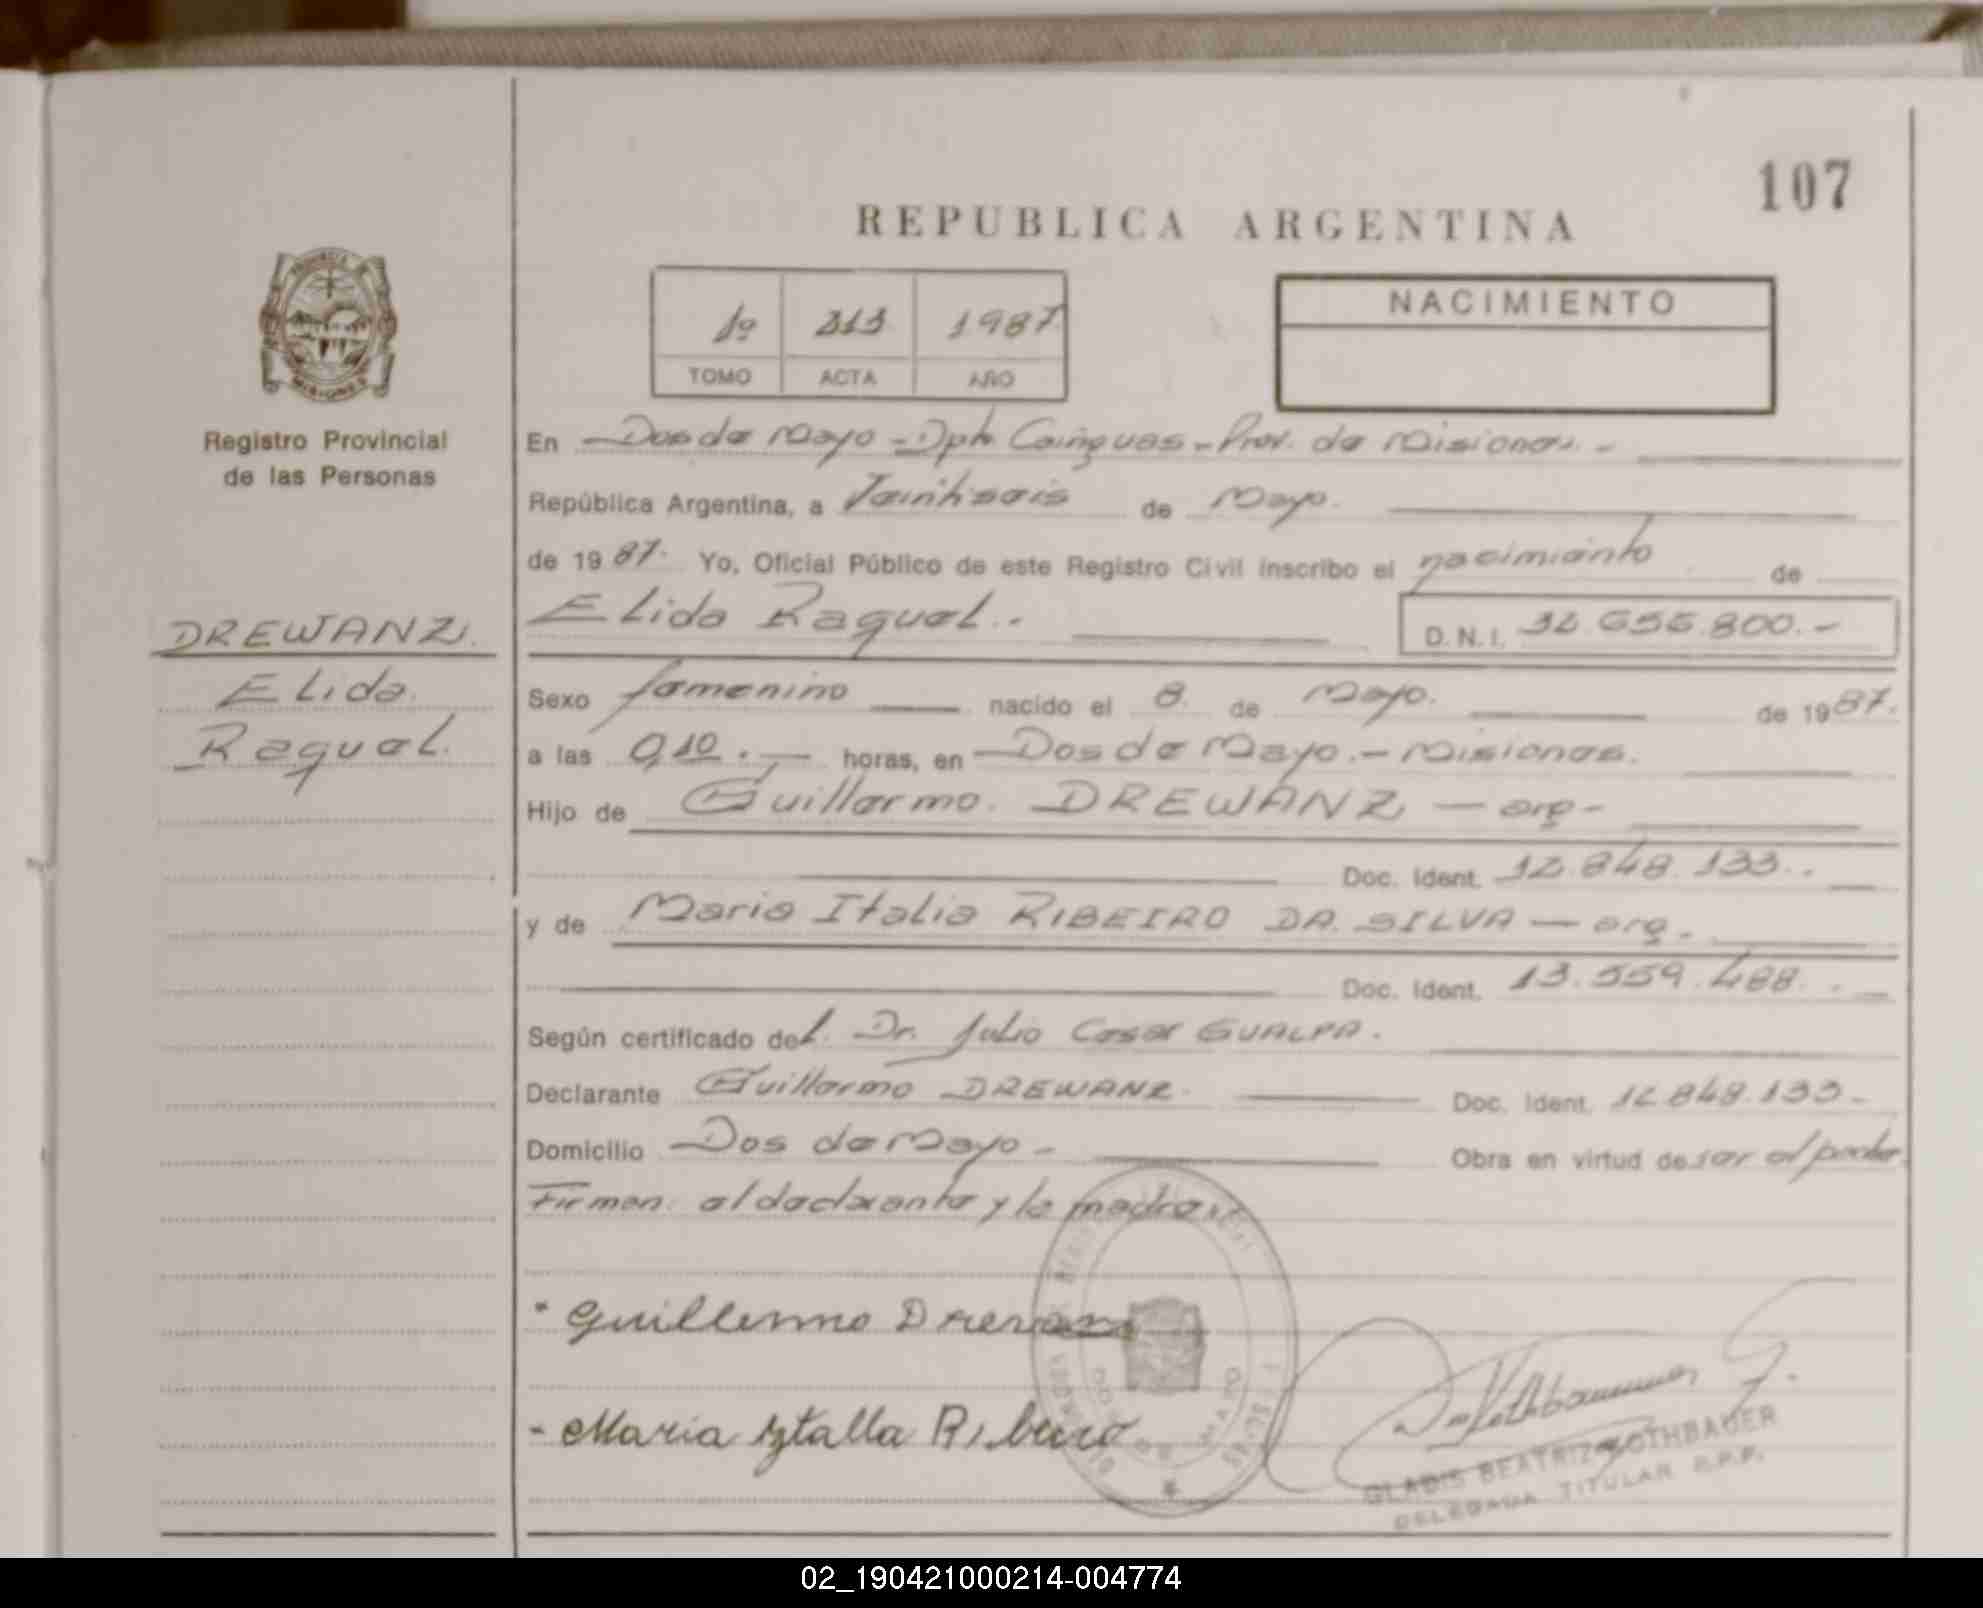 107
REPUBLICA ARGENTINA
1º 313 1987
TOMO ACTA AÑO
NACIMIENTO
PROVINCIA DE
MISIONES
Registro Provincial
de las Personas
DREWANZ.
Elida
Raquel.
En Dos de Mayo - Dpto Cainguas - Prov. de Misiones. -
República Argentina, a Veintiseis de Mayo.
de 1987. Yo, Oficial Público de este Registro Civil inscribo el nacimiento de
Elida Raquel. - D.N.I. 32.655.800. -
Sexo femenino nacido el 8 de Mayo. de 1987.
a las 9,10. - horas, en Dos de Mayo. - Misiones.
Hijo de Guillermo. DREWANZ - arg -
Doc. Ident. 12.848.133. -
y de Maria Italia RIBEIRO DA. SILVA - arg. -
Doc. Ident. 13.559.488. -
Según certificado del. Dr. Julio Cesar GUALPA.
Declarante Guillermo DREWANZ Doc. Ident. 12.848.133 -
Domicilio Dos de Mayo - Obra en virtud de ser el padre.
Firman: el declarante y la madre.
Guillermo Drewanz
- Maria Ytalia Ribeiro
GLADIS BEATRIZ ROTHBAUER
DELEGADA TITULAR R.P.P.
02_190421000214-004774